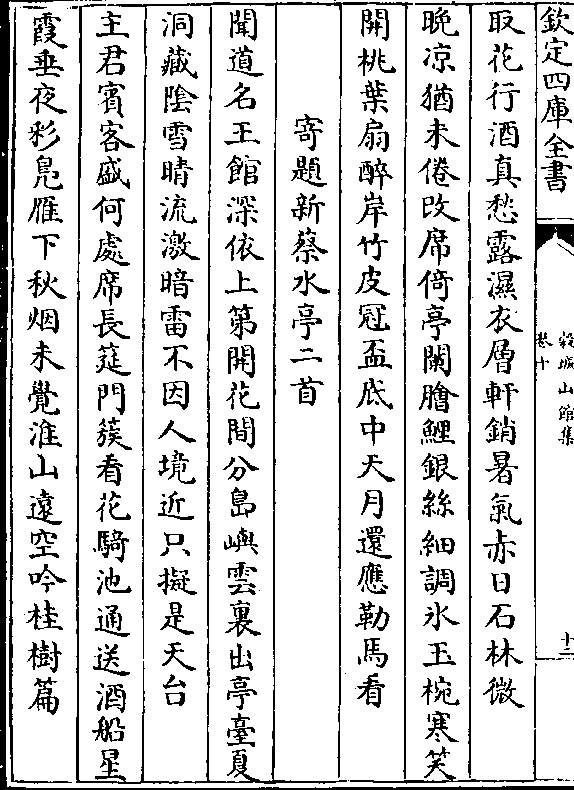 欽定四庫全書
穀城山館集
卷十
十二
取花行酒真愁露濕衣層軒銷暑氣赤日石林微
晚凉猶未倦改席倚亭闌膾鯉銀絲細調氷玉椀寒笑
開桃葉扇醉岸竹皮冠盃底中天月還應勒馬看
寄題新蔡水亭二首
聞道名王館深依上第開花間分島嶼雲裏出亭臺夏
洞藏陰雪晴流激暗雷不因人境近只擬是天台
主君賔客盛何處席長筵門簇看花騎池通送酒船星
霞垂夜彩鳬雁下秋烟未覺淮山遠空吟桂樹篇